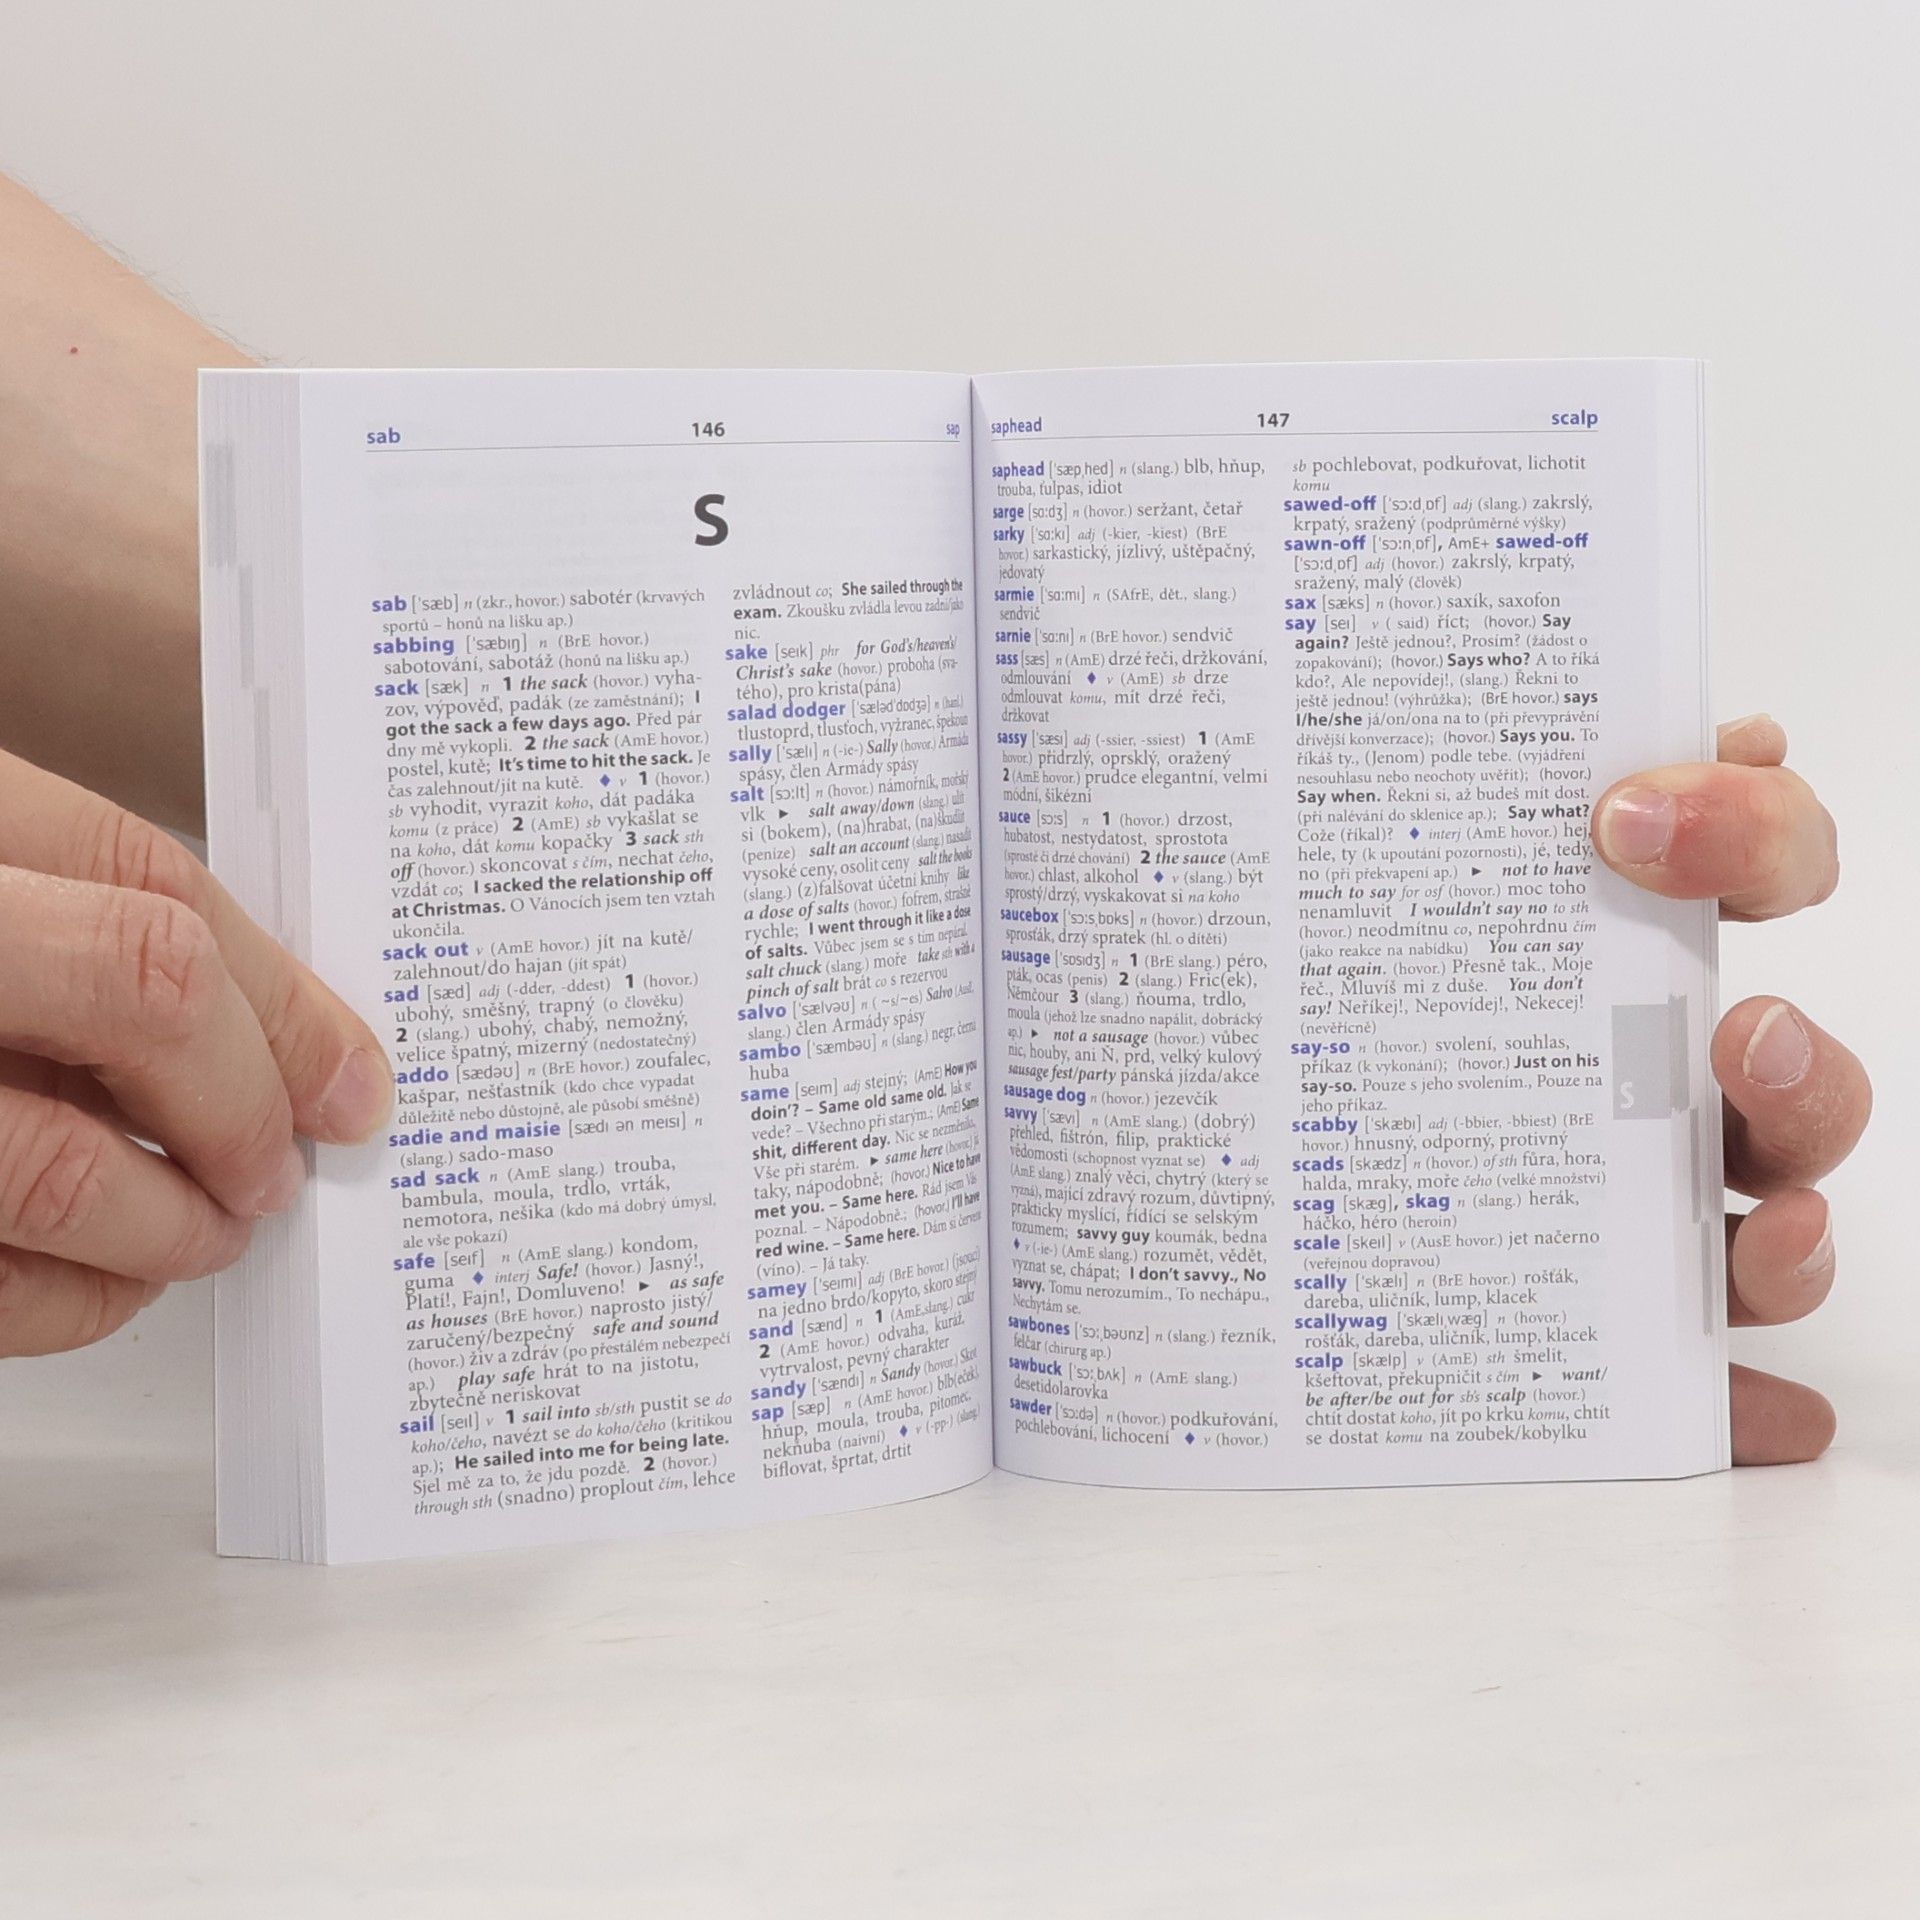 sab 146 sap
S
sab ['sæb] n (zkr., hovor.) sabotér (krvavých
sportů – honů na lišku ap.)
sabbing ['sæbɪŋ] n (BrE hovor.)
sabotování, sabotáž (honů na lišku ap.)
sack [sæk] n 1 the sack (hovor.) vyha-
zov, výpověď, padák (ze zaměstnání); I
got the sack a few days ago. Před pár
dny mě vykopli. 2 the sack (AmE hovor.)
postel, kutě; It's time to hit the sack. Je
čas zalehnout/jít na kutě. ♦ v 1 (hovor.)
sb vyhodit, vyrazit koho, dát padáka
komu (z práce) 2 (AmE) sb vykašlat se
na koho, dát komu kopačky 3 sack sth
off (hovor.) skoncovat s čím, nechat čeho,
vzdát co; I sacked the relationship off
at Christmas. O Vánocích jsem ten vztah
ukončila.
sack out v (AmE hovor.) jít na kutě/
zalehnout/do hajan (jít spát)
sad [sæd] adj (-dder, -ddest) 1 (hovor.)
ubohý, směšný, trapný (o člověku)
2 (slang.) ubohý, chabý, nemožný,
velice špatný, mizerný (nedostatečný)
addo [sædəʊ] n (BrE hovor.) zoufalec,
kašpar, nešťastník (kdo chce vypadat
důležitě nebo důstojně, ale působí směšně)
sadie and maisie [sædɪ ən meɪsɪ] n
(slang.) sado-maso
sad sack n (AmE slang.) trouba,
bambula, moula, trdlo, vrták,
nemotora, nešika (kdo má dobrý úmysl,
ale vše pokazí)
safe [seɪf] n (AmE slang.) kondom,
guma ♦ interj Safe! (hovor.) Jasný!,
Platí!, Fajn!, Domluveno! ► as safe
as houses (BrE hovor.) naprosto jistý/
zaručený/bezpečný safe and sound
(hovor.) živ a zdráv (po přestálém nebezpečí
ap.) play safe hrát to na jistotu,
zbytečně neriskovat
sail [seɪl] v 1 sail into sb/sth pustit se do
koho/čeho, navézt se do koho/čeho (kritikou
ap.); He sailed into me for being late.
Sjel mě za to, že jdu pozdě. 2 (hovor.)
through sth (snadno) proplout čím, lehce
zvládnout co; She sailed through the
exam. Zkoušku zvládla levou zadní/jako
nic.
sake [seɪk] phr for God's/heaven's/
Christ's sake (hovor.) proboha (sva-
tého), pro krista(pána)
salad dodger ['sæləd'dɒdʒə] n (hanl.)
tlustoprd, tlusťoch, vyžranec, špekoun
sally ['sælɪ] n (-ie-) Sally (hovor.) Armáda
spásy, člen Armády spásy
salt [sɔ:lt] n (hovor.) námořník, mořský
vlk ► salt away/down (slang.) ulít
si (bokem), (na)hrabat, (na)škudlit
(peníze) salt an account (slang.) nasadit
vysoké ceny, osolit ceny salt the books
(slang.) (z)falšovat účetní knihy like
a dose of salts (hovor.) fofrem, strašně
rychle; I went through it like a dose
of salts. Vůbec jsem se s tím nepáral.
salt chuck (slang.) moře take sth with a
pinch of salt brát co s rezervou
salvo ['sælvəʊ] n ( ~s/~es) Salvo (Aus.,
slang.) člen Armády spásy
sambo ['sæmbəʊ] n (slang.) negr, černá
huba
same [seɪm] adj stejný; (AmE) How you
doin'? – Same old same old. Jak se
vede? – Všechno při starým.; (AmE) Same
shit, different day. Nic se nezměnilo,
Vše při starém. ► same here (hovor.) já
taky, nápodobně; (hovor.) Nice to have
met you. – Same here. Rád jsem Vás
poznal. – Nápodobně.; (hovor.) I'll have
red wine. – Same here. Dám si červené
(víno). – Já taky.
samey ['seɪmɪ] adj (BrE hovor.) (jsoucí)
na jedno brdo/kopyto, skoro stejný
sand [sænd] n 1 (AmE slang.) cukr
2 (AmE hovor.) odvaha, kuráž,
vytrvalost, pevný charakter
sandy ['sændɪ] n Sandy (hovor.) Skot
sap [sæp] n (AmE hovor.) blb(eček),
hňup, moula, trouba, pitomec,
nekňuba (naivní) ♦ v (-pp-) (slang.)
biflovat, šprtat, drtit
saphead 147 scalp
saphead ['sæpˌhed] n (slang.) blb, hňup,
trouba, ťulpas, idiot
sarge [sɑ:dʒ] n (hovor.) seržant, četař
sarky ['sɑ:kɪ] adj (-kier, -kiest) (BrE
hovor.) sarkastický, jízlivý, uštěpačný,
jedovatý
sarmie ['sɑ:mɪ] n (SAfrE, dět., slang.)
sendvič
sarnie ['sɑ:nɪ] n (BrE hovor.) sendvič
sass [sæs] n (AmE) drzé řeči, držkování,
odmlouvání ♦ v (AmE) sb drze
odmlouvat komu, mít drzé řeči,
držkovat
sassy ['sæsɪ] adj (-ssier, -ssiest) 1 (AmE
hovor.) přidrzlý, oprsklý, oražený
2 (AmE hovor.) prudce elegantní, velmi
módní, šikézní
sauce [sɔ:s] n 1 (hovor.) drzost,
hubatost, nestydatost, sprostota
(sprosté či drzé chování) 2 the sauce (AmE
hovor.) chlast, alkohol ♦ v (slang.) být
sprostý/drzý, vyskakovat si na koho
saucebox ['sɔ:sˌbɒks] n (hovor.) drzoun,
sprosťák, drzý spratek (hl. o dítěti)
sausage ['sɒsɪdʒ] n 1 (BrE slang.) péro,
pták, ocas (penis) 2 (slang.) Fric(ek),
Němčour 3 (slang.) ňouma, trdlo,
moula (jehož lze snadno napálit, dobrácký
ap.) ► not a sausage (hovor.) vůbec
nic, houby, ani Ň, prd, velký kulový
sausage fest/party pánská jízda/akce
sausage dog n (hovor.) jezevčík
savvy ['sævɪ] n (AmE slang.) (dobrý)
přehled, fištrón, filip, praktické
vědomosti (schopnost vyznat se) ♦ adj
(AmE slang.) znalý věci, chytrý (který se
vyzná), mající zdravý rozum, důvtipný,
prakticky myslící, řídící se selským
rozumem; savvy guy koumák, bedna
♦ v (-ie-) (AmE slang.) rozumět, vědět,
vyznat se, chápat; I don't savvy., No
savvy. Tomu nerozumím., To nechápu.,
Nechytám se.
sawbones ['sɔ:ˌbəʊnz] n (slang.) řezník,
felčar (chirurg ap.)
sawbuck ['sɔ:ˌbʌk] n (AmE slang.)
desetidolarovka
sawder ['sɔ:də] n (hovor.) podkuřování,
pochlebování, lichocení ♦ v (hovor.)
sb pochlebovat, podkuřovat, lichotit
komu
sawed-off ['sɔ:dˌɒf] adj (slang.) zakrslý,
krpatý, sražený (podprůměrné výšky)
sawn-off ['sɔ:nˌɒf], AmE+ sawed-off
['sɔ:dˌɒf] adj (hovor.) zakrslý, krpatý,
sražený, malý (člověk)
sax [sæks] n (hovor.) saxík, saxofon
say [seɪ] v ( said) říct; (hovor.) Say
again? Ještě jednou?, Prosím? (žádost o
zopakování); (hovor.) Says who? A to říká
kdo?, Ale nepovídej!, (slang.) Řekni to
ještě jednou! (výhrůžka); (BrE hovor.) says
I/he/she já/on/ona na to (při převyprávění
dřívější konverzace); (hovor.) Says you. To
říkáš ty., (Jenom) podle tebe. (vyjádření
nesouhlasu nebo neochoty uvěřit); (hovor.)
Say when. Řekni si, až budeš mít dost.
(při nalévání do sklenice ap.); Say what?
Cože (říkal)? ♦ interj (AmE hovor.) hej,
hele, ty (k upoutání pozornosti), jé, tedy,
no (při překvapení ap.) ► not to have
much to say for osf (hovor.) moc toho
nenamluvit I wouldn't say no to sth
(hovor.) neodmítnu co, nepohrdnu čím
(jako reakce na nabídku) You can say
that again. (hovor.) Přesně tak., Moje
řeč., Mluvíš mi z duše. You don't
say! Neříkej!, Nepovídej!, Nekecej!
(nevěřícně)
say-so n (hovor.) svolení, souhlas,
příkaz (k vykonání); (hovor.) Just on his
say-so. Pouze s jeho svolením., Pouze na
jeho příkaz.
scabby ['skæbɪ] adj (-bbier, -bbiest) (BrE
hovor.) hnusný, odporný, protivný
scads [skædz] n (hovor.) of sth fůra, hora,
halda, mraky, moře čeho (velké množství)
scag [skæg], skag n (slang.) herák,
háčko, héro (heroin)
scale [skeɪl] v (AusE hovor.) jet načerno
(veřejnou dopravou)
scally ['skælɪ] n (BrE hovor.) rošťák,
dareba, uličník, lump, klacek
scallywag ['skælɪˌwæg] n (hovor.)
rošťák, dareba, uličník, lump, klacek
scalp [skælp] v (AmE) sth šmelit,
kšeftovat, překupničit s čím ► want/
be after/be out for sb's scalp (hovor.)
chtít dostat koho, jít po krku komu, chtít
se dostat komu na zoubek/kobylku
S